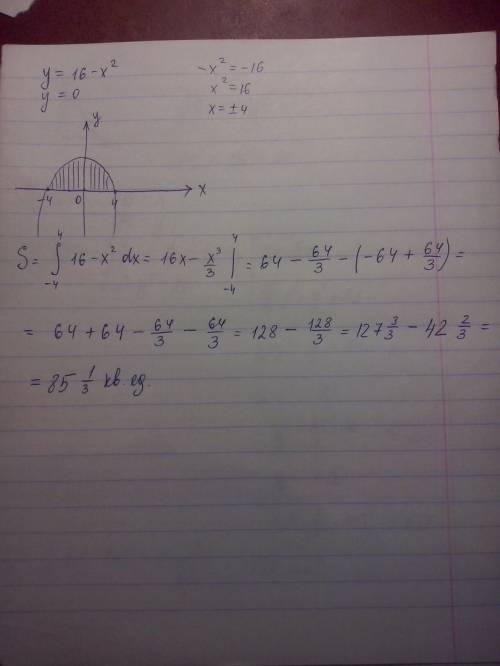 y = 16 - x²
y = 0
-x² = -16
x² = 16
x = ±4
y
-4 0 4 x
S = ∫₋₄⁴ 16 - x² dx = 16x - x³/3 |₋₄⁴ = 64 - 64/3 - (-64 + 64/3) =
= 64 + 64 - 64/3 - 64/3 = 128 - 128/3 = 127 3/3 - 42 2/3 =
= 85 1/3 кв ед.